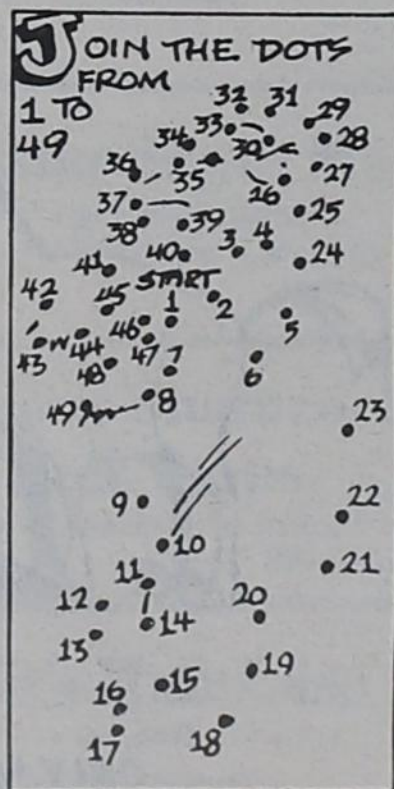 JOIN THE DOTS
FROM
1 TO
49
32 31
33 29
34 30 28
36 35 27
37 26
38 39 25
40 3 4
41 24
START
42 45 1 2
46 5
43 44 47 7
48 6
49 8
23
9
22
10
11 21
12 20
14
13
15 19
16
17 18